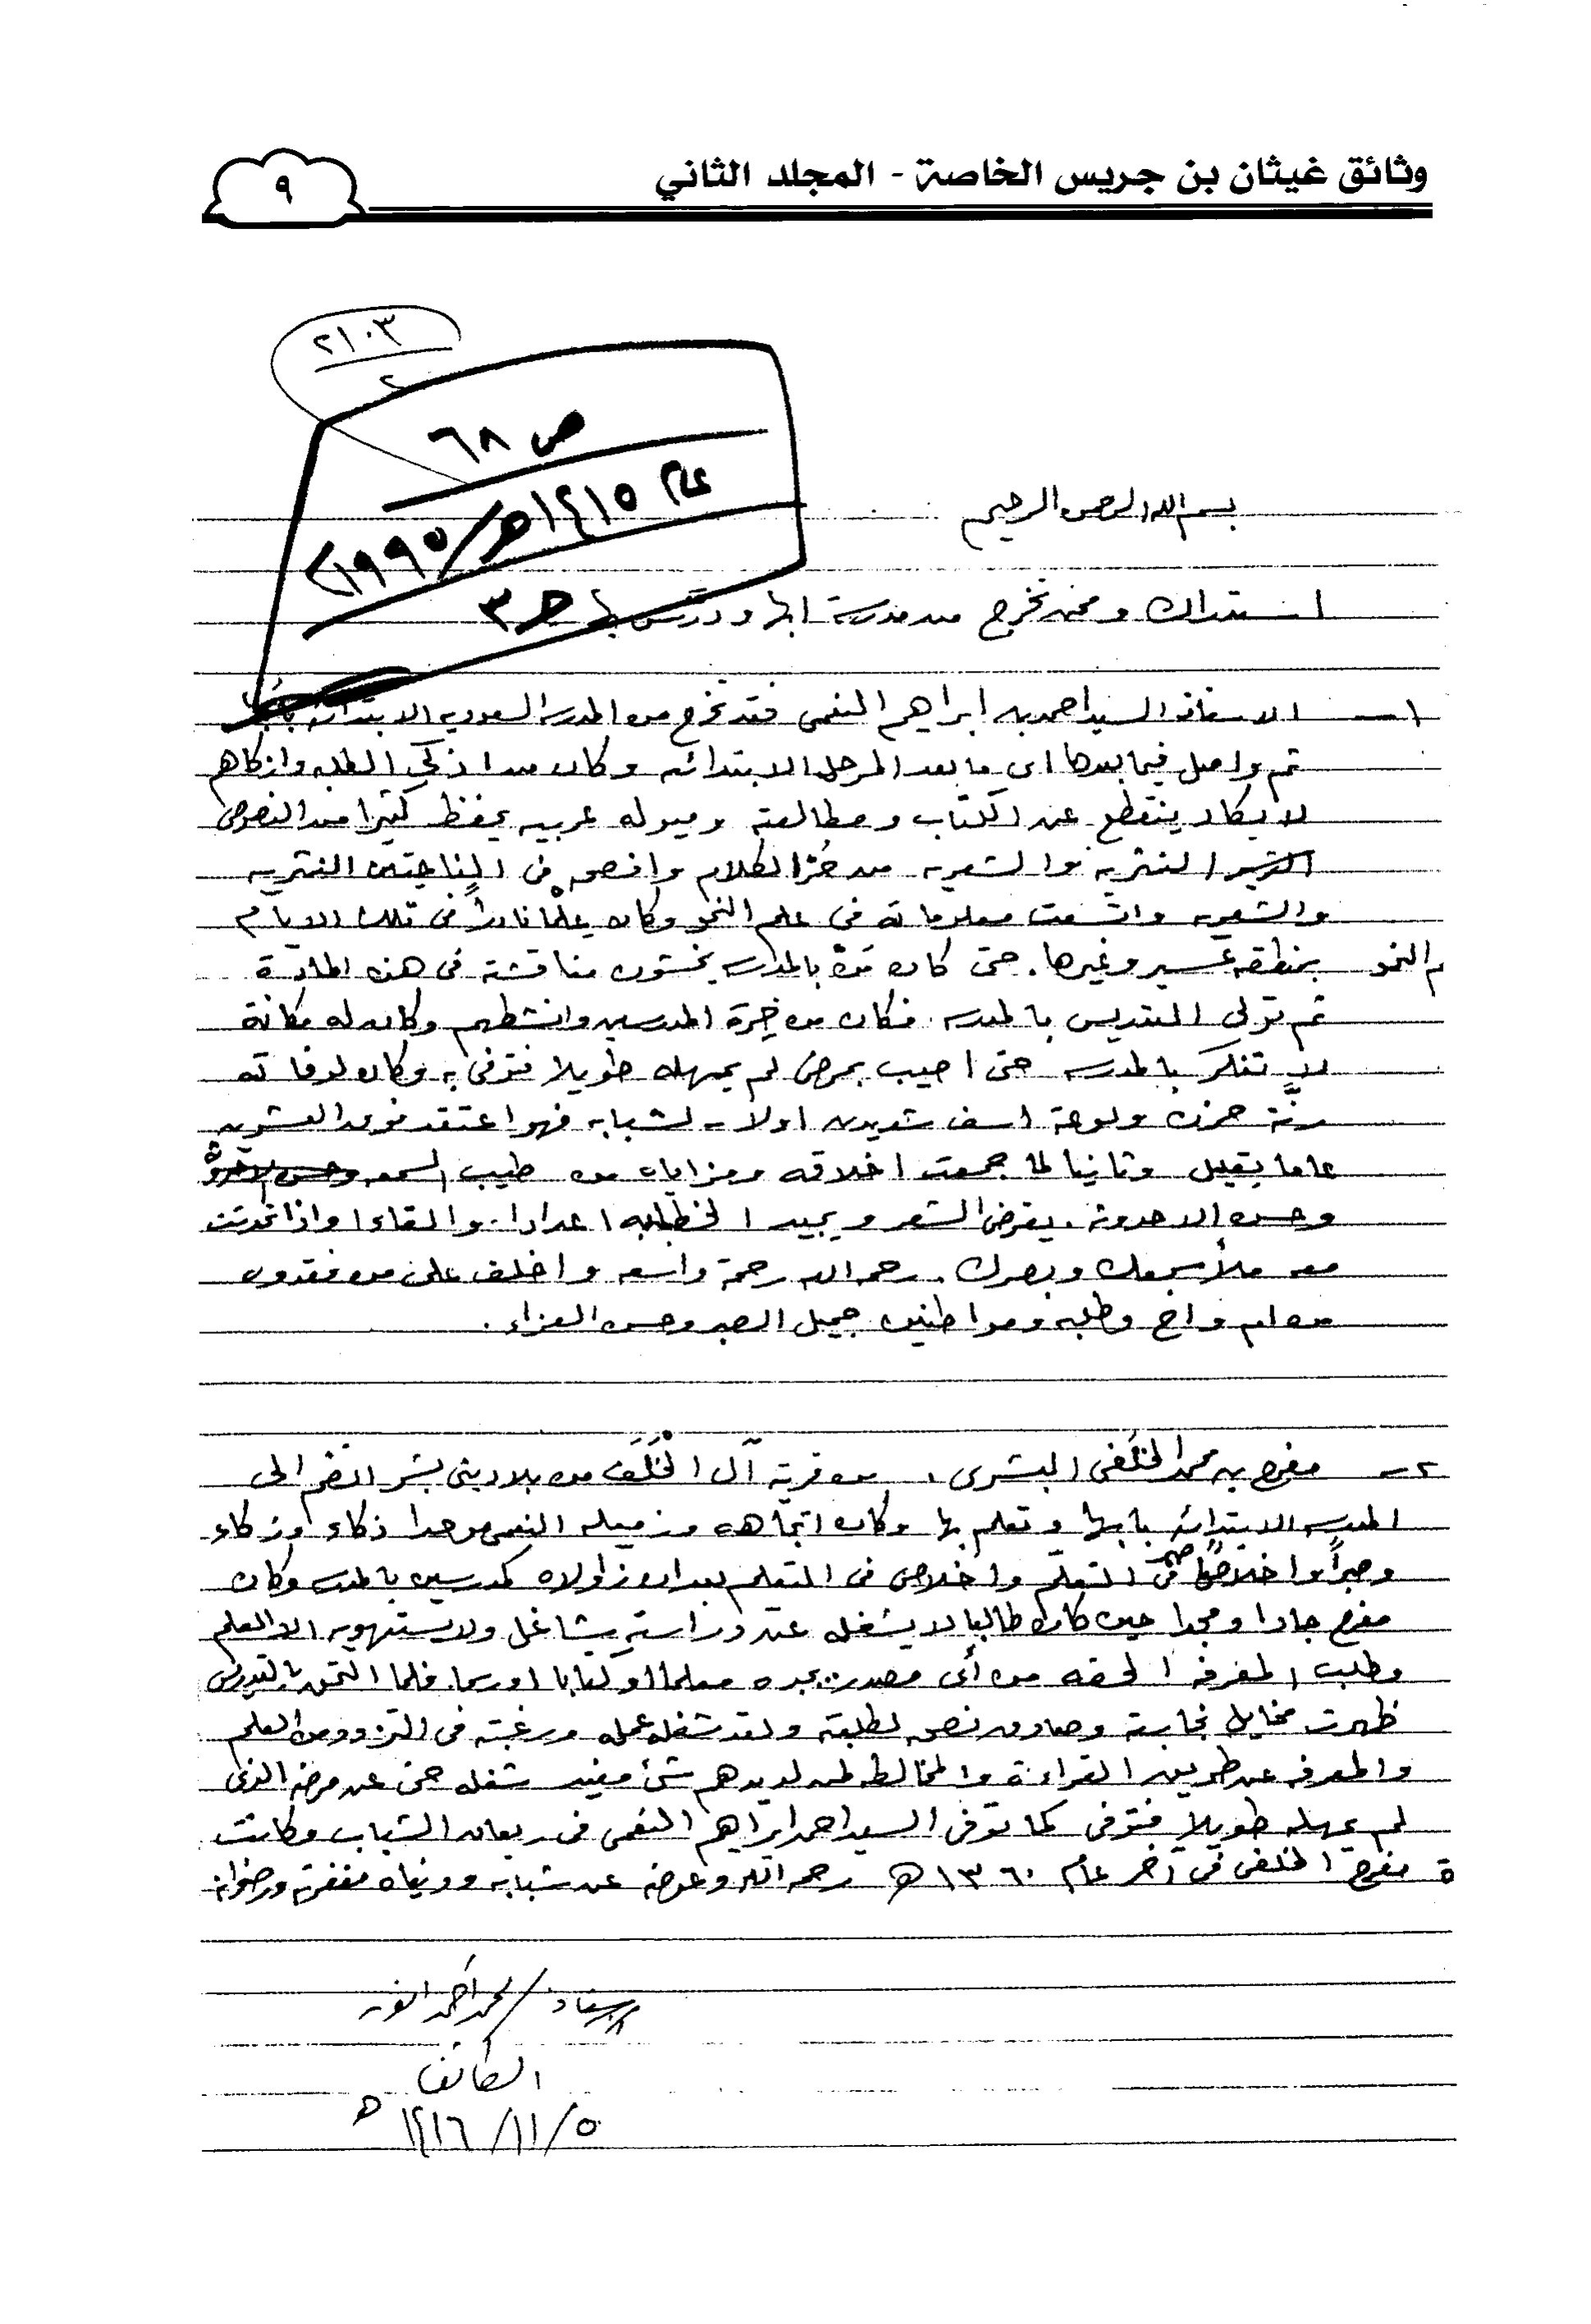 وثائق غيثان بن جريس الخاصة - المجلد الثاني
٩
٢١٠٣
٢
ص ٦٨
عام ١٤١٥هـ/١٩٩٥م
ج ٣
بسم الله الرحمن الرحيم
استدراك وممن تخرج من مدرسة ابها ودرّس بها
١- الاستاذ السيد احمد بن ابراهيم النعمي فقد تخرج من المدرسه السعوديه الابتدائيه بأبها
ثم واصل فيما بعدها اى ما بعد المرحله الابتدائيه وكان من اذكى الطلبه وازكاهم
لا يكاد ينقطع عن الكتاب ومطالعته وميوله عربيه يحفظ كثيرا من النصوص
النثريه والشعريه من حُرّ الكلام وافصحه في الناحيتين النثريه
والشعريه واتسعت معلوماته في علم النحو وكان علمًا نادرًا في تلك الايام
م النحو بمنطقة عسير وغيرها. حتى كان من بالمدرسه يخشون مناقشته في هذه المادة
ثم تولى التدريس بالمدرسه. فكان من خِيرة المدرسين وانشطهم وكان له مكانة
لا تنكر بالمدرسه حتى اصيب بمرض لم يمهله طويلا فتوفى به وكان لوفاته
رنّة حزن ولوعة اسف شديدين اولا - لشبابه فهو اعتقد فوق العشرين
عاما بقليل وثانيا لما جمعت اخلاقه ومزاياه من طيب السمعه
وحسن الاحدوثه. يقرض الشعر ويجيد الخطابه اعدادا. والقاءا واذا تحدثت
معه ملأ سمعك وبصرك. رحمه الله رحمة واسعه واخلف على من فقدوه
من ام واخ وطلبه ومواطنين جميل الصبر وحسن العزاء.
٢- مفرح بن محمد الخلَفى البشرى. من قرية آل الخَلَف من بلاد بنى بشر انضم الى
المدرسه الابتدائيه بابها وتعلم بها وكان اتجاهه وزميله النعمى موحدا ذكاء وزكاء
وصبراً واخلاصاً في التعلّم واخلاص في التعليم بعد ان زاولاه كمدرسين بالمدرسه وكان
مفرح جادا ومجدا حين كان طالبا لا يشغله عن دراسته شاغل ولا يستهويه الا العلم
وطلب المعرفه الحقه من أى مصدر يجده معلما او كتابا او رسما. فلما التحق بالتدريس
ظهرت مخايل نجابته وصادق نصحه لطلبته ولقد شغله عمله ورغبته في التزود من العلم
والمعرفه عن طريق القراءة والمخالطه لمن لديهم شئ مفيد شغله حتى عن مرضه الذى
لم يمهله طويلا فتوفى كما توفى السيد احمد ابراهيم النعمى في ريعان الشباب وكانت
ة مفرح الخلفى في آخر عام ١٣٦٠ هـ رحمه الله وعوضه عن شبابه ودنياه مغفرته ورضوانه
الاستاذ / محمد أحمد انور
الطائف
٥/١١/١٤١٦ هـ